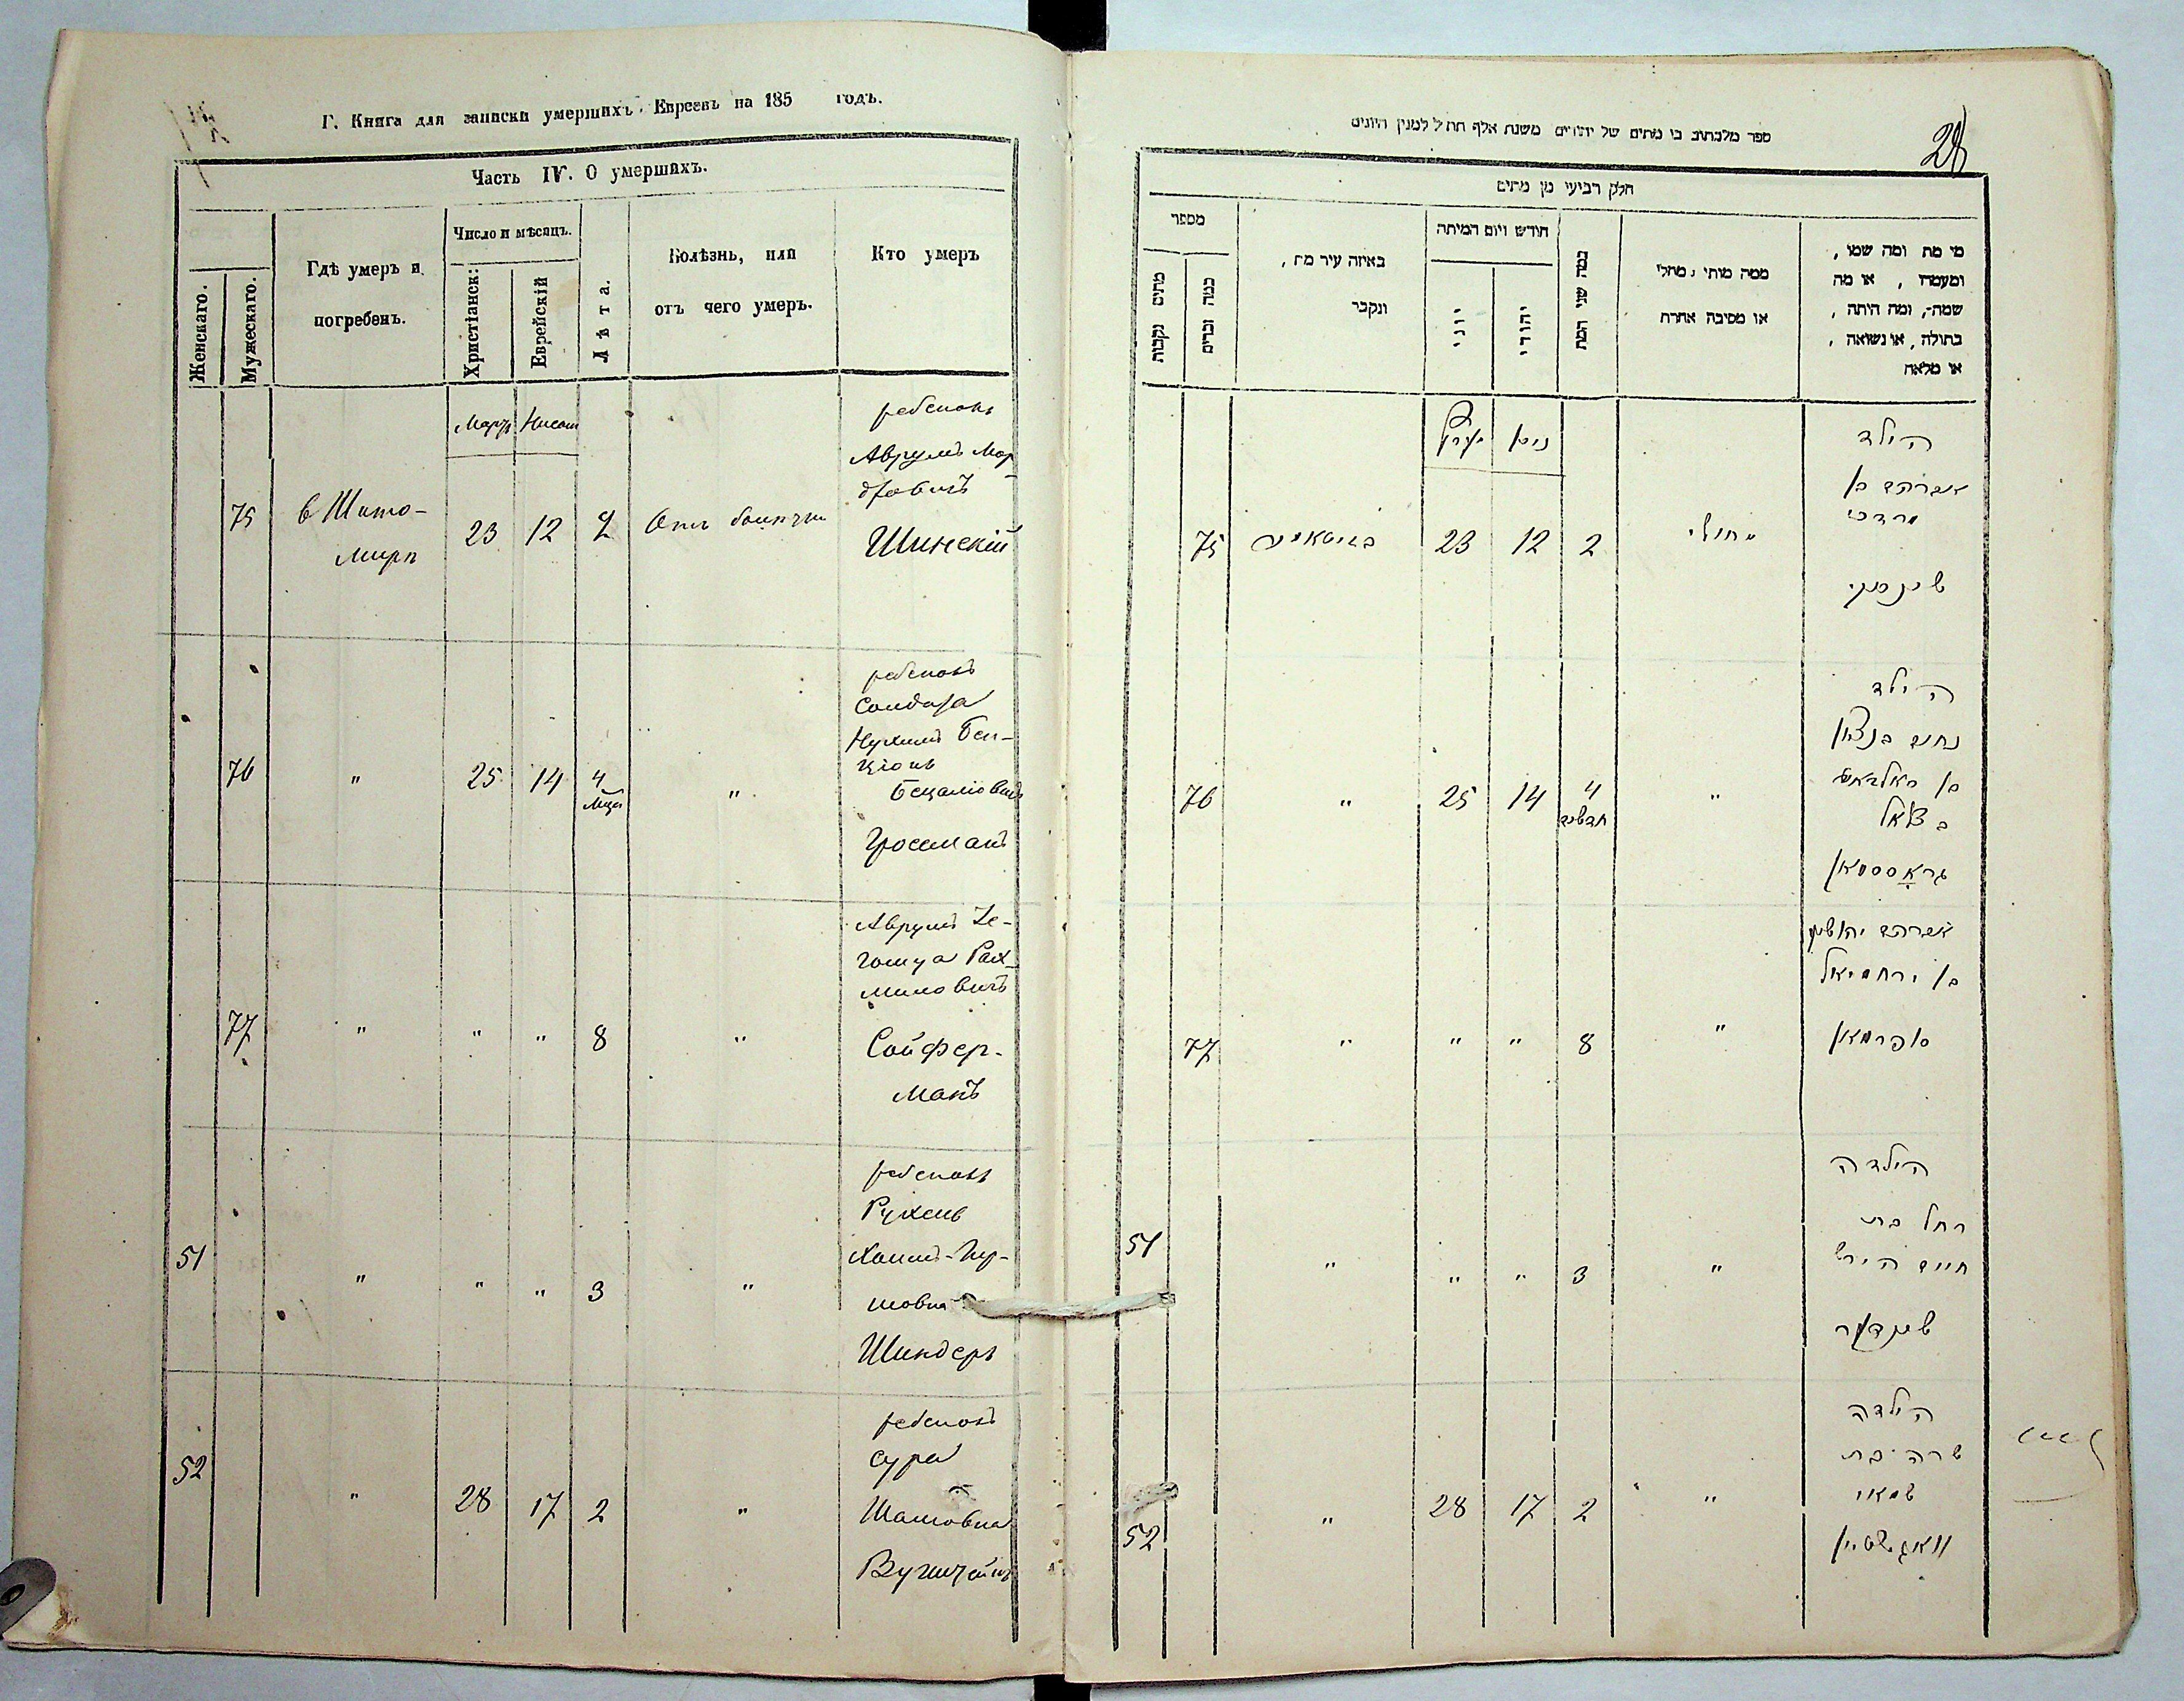 Г. Книга для записки умершихъ Евреевъ на 185 годъ.
Часть IV. О умершихъ.
Женскаго.
Мужескаго.
Гдѣ умеръ и
погребенъ.
Число и мѣсяцъ.
Христіанск:
Еврейскій
Лѣта.
Болѣзнь, или
отъ чего умеръ.
Кто умеръ
Мартъ Нисанъ
75 в Жито-
миръ 23 12 2
ребенокъ
Аврумъ Мор
Шинскій
76 " 25 14 4 "
ребенокъ
солдата
Нухимъ Бен-
ціонъ
Бецаліовичъ
Гроссманъ
77 " " " 8 "
Аврумъ Іе-
гошуа Рах-
миловичъ
Сойфер-
манъ
51 " " " 3 "
ребенокъ
Рухель
Хаимъ-Гер-
шовна
Шиндеръ
52 " 28 17 2 "
ребенокъ
сура
Вугштейнъ
28
חלק רביעי מן מתים
מספר
מתים נקבות
כמה זכרים
באיזה עיר מת,
ונקבר
חודש ויום המיתה
יוני
יהודי
כמה שני המת
ממה מותו מחלי
או מסיבה אחרת
מי מת ומה שמו,
ומעמדו, או מה
שמה, ומה היתה,
בתולה, או נשואה,
או מלאה
מערץ ניסן
75 23 12 2 מחולי
הילד
אברהם בן
מרדכי
שינסקי
76 " 25 14 4 חדשים "
הילד
נחום בנציון
בן סאלדאט
בצלאל
גראסמאן
77 " " " 8 "
אברהם יהושע
בן ירחמיאל
סופרמאן
51 " " " 3 "
הילדה
רחל בת
חיים הירש
שינדער
52 " 28 17 2 "
הילדה
שרה בת
שמאי
וואגשטיין